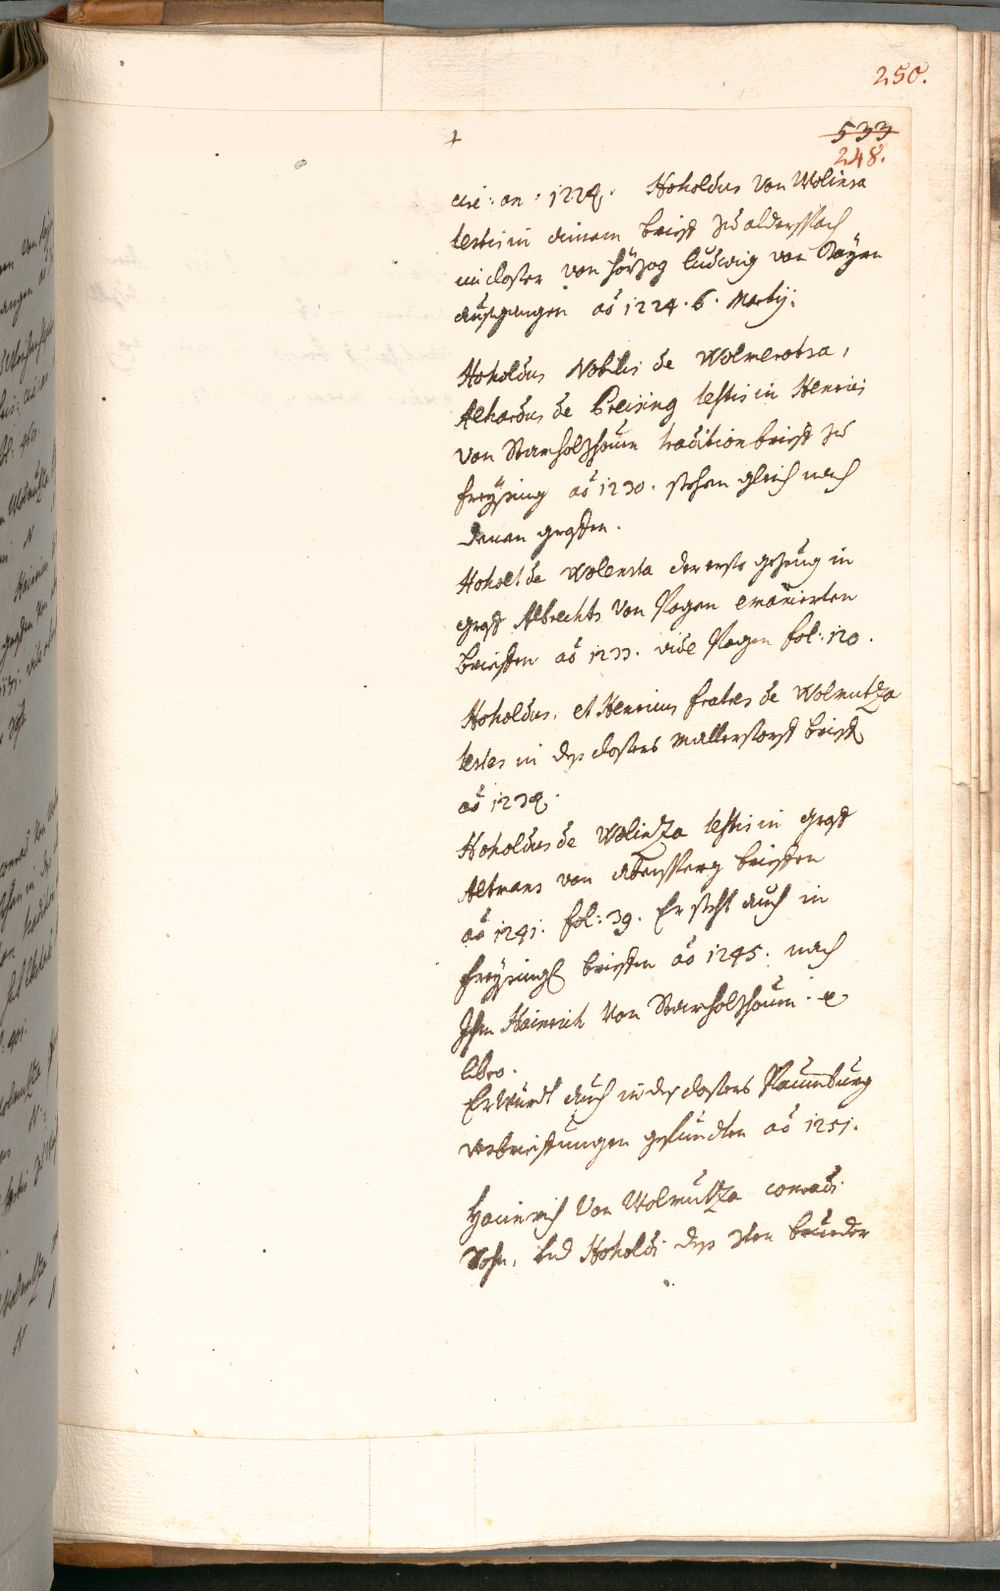 250.
533
248.
cui: an: 1224. Hoholdus Von Wolinsa
testis in ainem brieff zu alderspach
im closter von Hörzog Ludwig von Bayrn
außgangen aõ 1224. 6. Martij.
Hoholdus Nobilis de Wolmerotsa,
Alhardus de Preising testis in Henrici
von Starholzhoum traditionbrieff zu
freysing aõ 1230. stehen gleich nach
denen graffen.
Hoholt de Wolensta der erste gezeug in
graff Albrechts Von Pogen
brieffen aõ 1233. vide Pogen fol: 120.
Hoholdus, et Henricus fratres de Wolmutza
testes in deß closters Mallerstorff brieff
aõ 1234.
Hoholdus de Wolintza testis in graff
Altmans von Abenssperg brieffen
aõ 1241. fol: 39. Er steht auch in
freysing brieffen aõ 1245. nach
Ihm Hainrich Von Starholzhoum. ex
libro.
Er würdt auch in des closters Paumburg
verbrieffungen gefundten aõ 1251.
Hainrich Von Wolmutza conradi
Sohn, und Hoholdi deß 3ten brueder